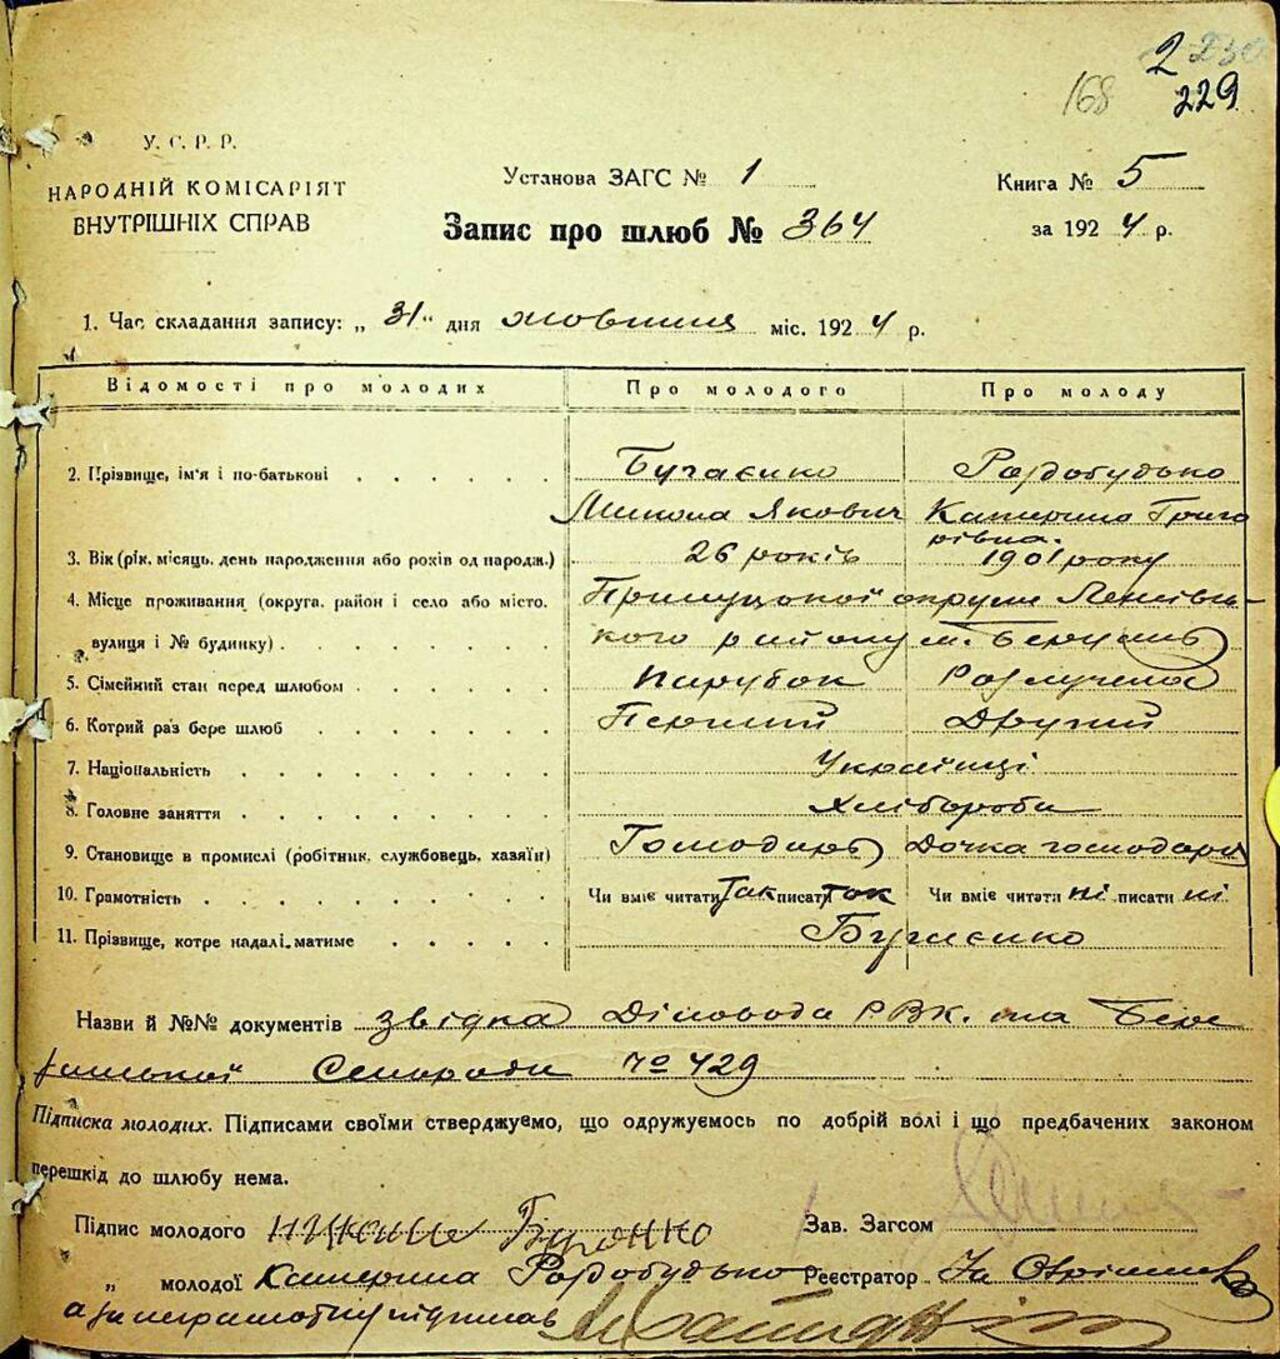 2 230
168 229
У. С. Р. Р.
НАРОДНІЙ КОМІСАРІЯТ
ВНУТРІШНІХ СПРАВ
Установа ЗАГС № 1
Книга № 5
Запис про шлюб № 364
за 1924 р.
1. Час складання запису: „31" дня жовтня міс. 1924 р.
Відомості про молодих Про молодого Про молоду
2. Прізвище, ім'я і по-батькові Бугаєнко Роздобудько
Микола Якович Катерина Григо
рівна.
3. Вік (рік, місяць, день народження або років од народж.) 26 років 1901 року
4. Місце проживання (округа, район і село або місто, Прилуцької округи
вулиця і № будинку) кого району м.
5. Сімейний стан перед шлюбом Парубок Розлучена
6. Котрий раз бере шлюб Перший Другий
7. Національність Українці
8. Головне заняття Хлібороби
9. Становище в промислі (робітник, службовець, хазяїн) Господарь Дочка господаря
10. Грамотність Чи вміє читати Так писати Так Чи вміє читати ні писати ні
11. Прізвище, котре надалі матиме Бугаєнко
Назви й №№ документів звідка Діловода РВК. та Бере
Сельради № 429
Підписка молодих. Підписами своїми стверджуємо, що одружуємось по добрій волі і що предбачених законом
перешкід до шлюбу нема.
Підпис молодого Зав. Загсом
„ молодої Катерина Роздобудько Реєстратор
а за неграмотну підписав